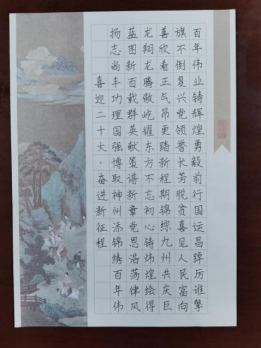 百年伟业铸辉煌勇毅前行国运昌踔厉谁擎
旗不倒复兴党领普长芳脱贫喜见人民富向
善欣看正气昂更踏新程期锦绣九州共庆巨
龙翔龙腾傲屹耀东方不忘初心铸炜煌绘得
蓝图新百载群英献策谱新章党恩浩荡律风
扬志曲丰功理国强博取神州添锦绣百年伟
喜迎二十大·奋进新征程